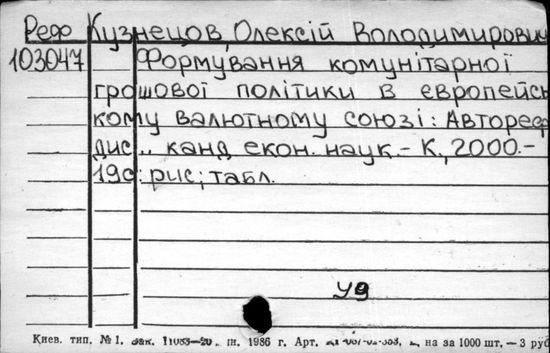 Реф Кузнецов, Олексій Володимирович
103047 Формування комунітарної
грошової політики в європейсь
кому валютному союзі: Автореф
дис... канд екон. наук.- К., 2000.-
19с: рис; табл.
У9
Киев. тип. №1. Зак. 1986 г. Арт. на за 1000 шт. — 3 руб